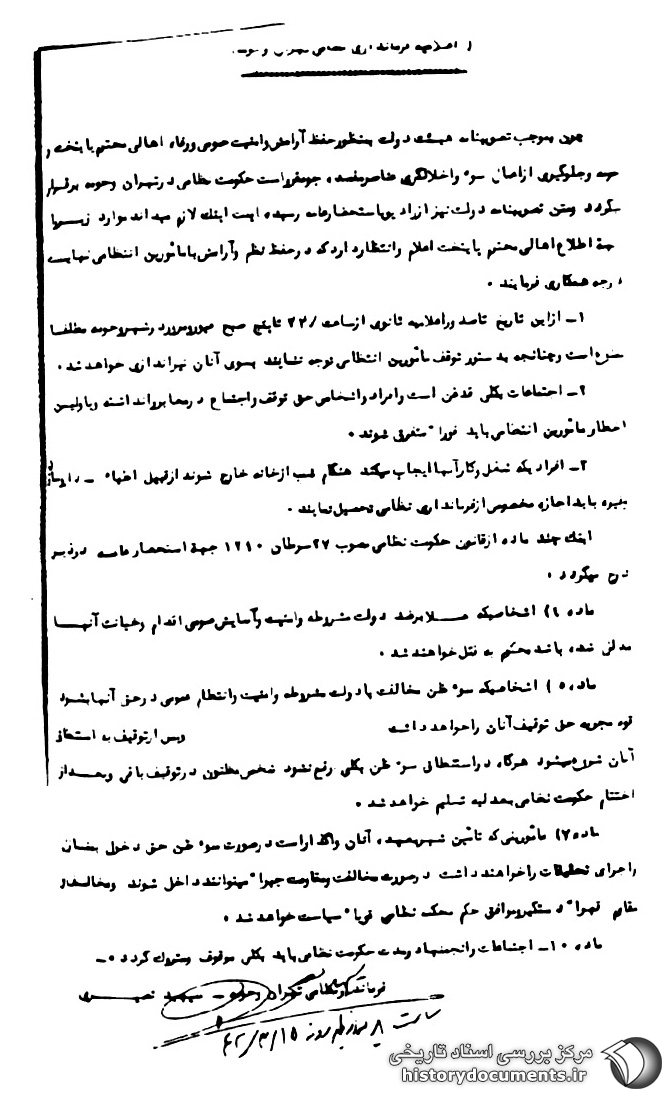 ( اعلامیه فرمانداری نظامی تهران و حومه )
چون بموجب تصویبنامه هیئت دولت بمنظور حفظ آرامش و امنیت عمومی و رفاه اهالی محترم پایتخت و
حومه و جلوگیری از اعمال سوء و اخلالگری عناصر مفسده جو مقرر است حکومت نظامی در تهران و حومه برقرار
گردد و متن تصویبنامه دولت نیز از رادیو باستحضار عامه رسیده است اینک لازم میداند موارد زیر را
جهة اطلاع اهالی محترم پایتخت اعلام و انتظار دارد که در حفظ نظم و آرامش با مأمورین انتظامی نهایت
درجه همکاری فرمایند .
۱ـ از این تاریخ تا صدور اعلامیه ثانوی از ساعت /۲۲ تا پنج صبح عبور و مرور در شهر و حومه مطلقا
ممنوع است و چنانچه بدستور توقف مأمورین انتظامی توجه ننمایند بسوی آنان تیراندازی خواهد شد .
۲ـ اجتماعات بکلی قدغن است و افراد و اشخاص حق توقف و اجتماع در معابر را نداشته و با اولین
اخطار مأمورین انتظامی باید فوراً متفرق شوند .
۳ـ افرادیکه شغل و کار آنها ایجاب میکند هنگام شب از خانه خارج شوند از قبیل اطباء ـ
غیره باید اجازه مخصوص از فرمانداری نظامی تحصیل نمایند .
اینک چند ماده از قانون حکومت نظامی مصوب ۲۷ سرطان ۱۲۹۰ جهة استحضار عامه در زیر
درج میگردد .
ماده ۴) اشخاصیکه عملا برضد دولت مشروطه و امنیت و آسایش عمومی اقدام و خیانت آنها
مدلل شده باشد محکوم به قتل خواهند شد .
ماده ۵ ) اشخاصیکه سوء ظن مخالفت با دولت مشروطه و امنیت و انتظام عمومی در حق آنها بشود
قوه مجریه حق توقیف آنان را خواهد داشت و پس از توقیف به استنطاق
آنان شروع میشود هرگاه در استنطاق سوء ظن بکلی رفع نشود شخص مظنون در توقیف باقی و بعد از
اختتام حکومت نظامی بعدلیه تسلیم خواهد شد .
ماده ۷) مأمورینی که تأمین شهر بعهده آنان واگذار است در صورت سوء ظن حق دخول بمنازل
و اجرای تحقیقات را خواهند داشت در صورت مخالفت و مقاومت جبراً میتوانند داخل شوند و مخالف و
مقاوم قهراً دستگیر و موافق حکم محکمه نظامی قویاً سیاست خواهد شد .
ماده ۱۰ـ اجتماعات و انجمنها در مدت حکومت نظامی باید بکلی موقوف و متروک گردد ـ
فرماندار نظامی تهران و حومه ـ سپهبد نصیری
ساعت ۸ روز ۴۲/۳/۱۵
مرکز بررسی اسناد تاریخی
historydocuments.ir